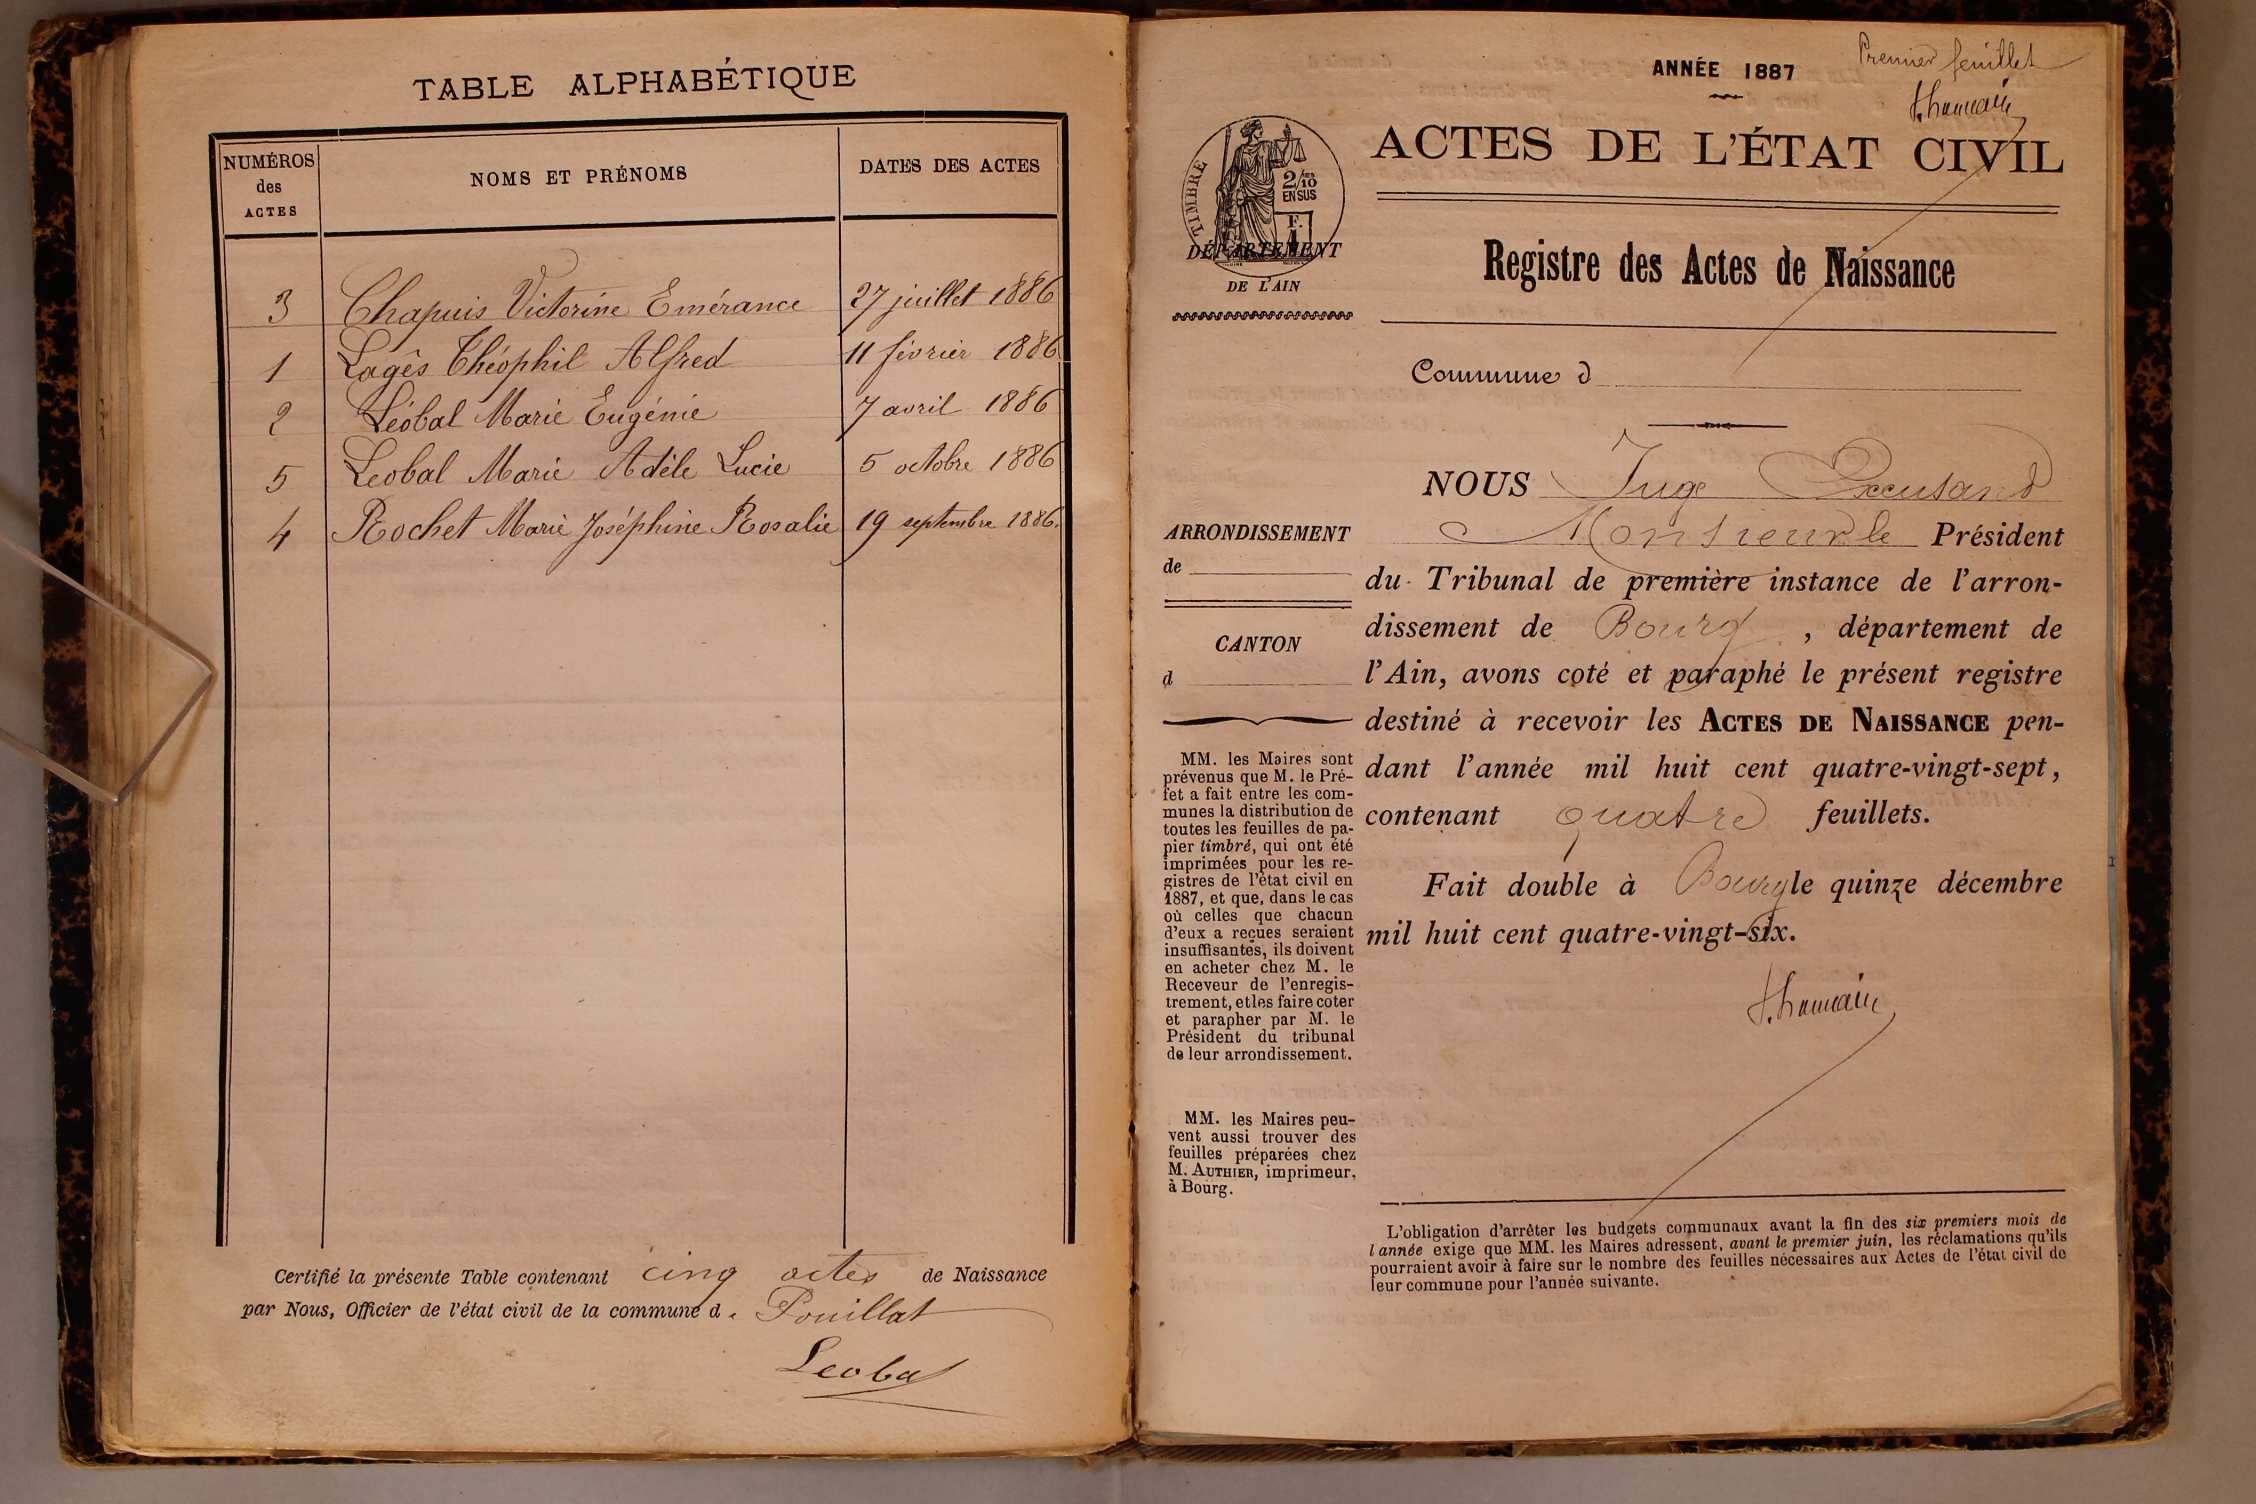 TABLE ALPHABÉTIQUE
NUMÉROS des ACTES
NOMS ET PRÉNOMS
DATES DES ACTES
3 Chapuis Victorine Emérance 27 juillet 1886
1 Lagês Théophil Alfred 11 février 1886
2 Léobal Marie Eugénie 7 avril 1886
5 Leobal Marie Adèle Lucie 5 octobre 1886
4 Rochet Marie Joséphine Rosalie 19 septembre 1886.
Certifié la présente Table contenant cinq actes de Naissance
par Nous, Officier de l'état civil de la commune d. Pouillat
Leobal
Premier feuillet
ANNÉE 1887
ACTES DE L'ÉTAT CIVIL
TIMBRE
2/10
EN SUS
F.
1
DÉPARTEMENT
DE L'AIN
Registre des Actes de Naissance
Commune d
ARRONDISSEMENT
de
CANTON
d
MM. les Maires sont
prévenus que M. le Pré-
fet a fait entre les com-
munes la distribution de
toutes les feuilles de pa-
pier timbré, qui ont été
imprimées pour les re-
gistres de l'état civil en
1887, et que, dans le cas
où celles que chacun
d'eux a reçues seraient
insuffisantes, ils doivent
en acheter chez M. le
Receveur de l'enregis-
trement, et les faire coter
et parapher par M. le
Président du tribunal
de leur arrondissement.
MM. les Maires peu-
vent aussi trouver des
feuilles préparées chez
M. AUTHIER, imprimeur,
à Bourg.
NOUS Juge
Monsieur le Président
du Tribunal de première instance de l'arron-
dissement de Bourg, département de
l'Ain, avons coté et paraphé le présent registre
destiné à recevoir les ACTES DE NAISSANCE pen-
dant l'année mil huit cent quatre-vingt-sept,
contenant quatre feuillets.
Fait double à Bourg le quinze décembre
mil huit cent quatre-vingt-six.
L'obligation d'arrêter les budgets communaux avant la fin des six premiers mois de
l'année exige que MM. les Maires adressent, avant le premier juin, les réclamations qu'ils
pourraient avoir à faire sur le nombre des feuilles nécessaires aux Actes de l'état civil de
leur commune pour l'année suivante.